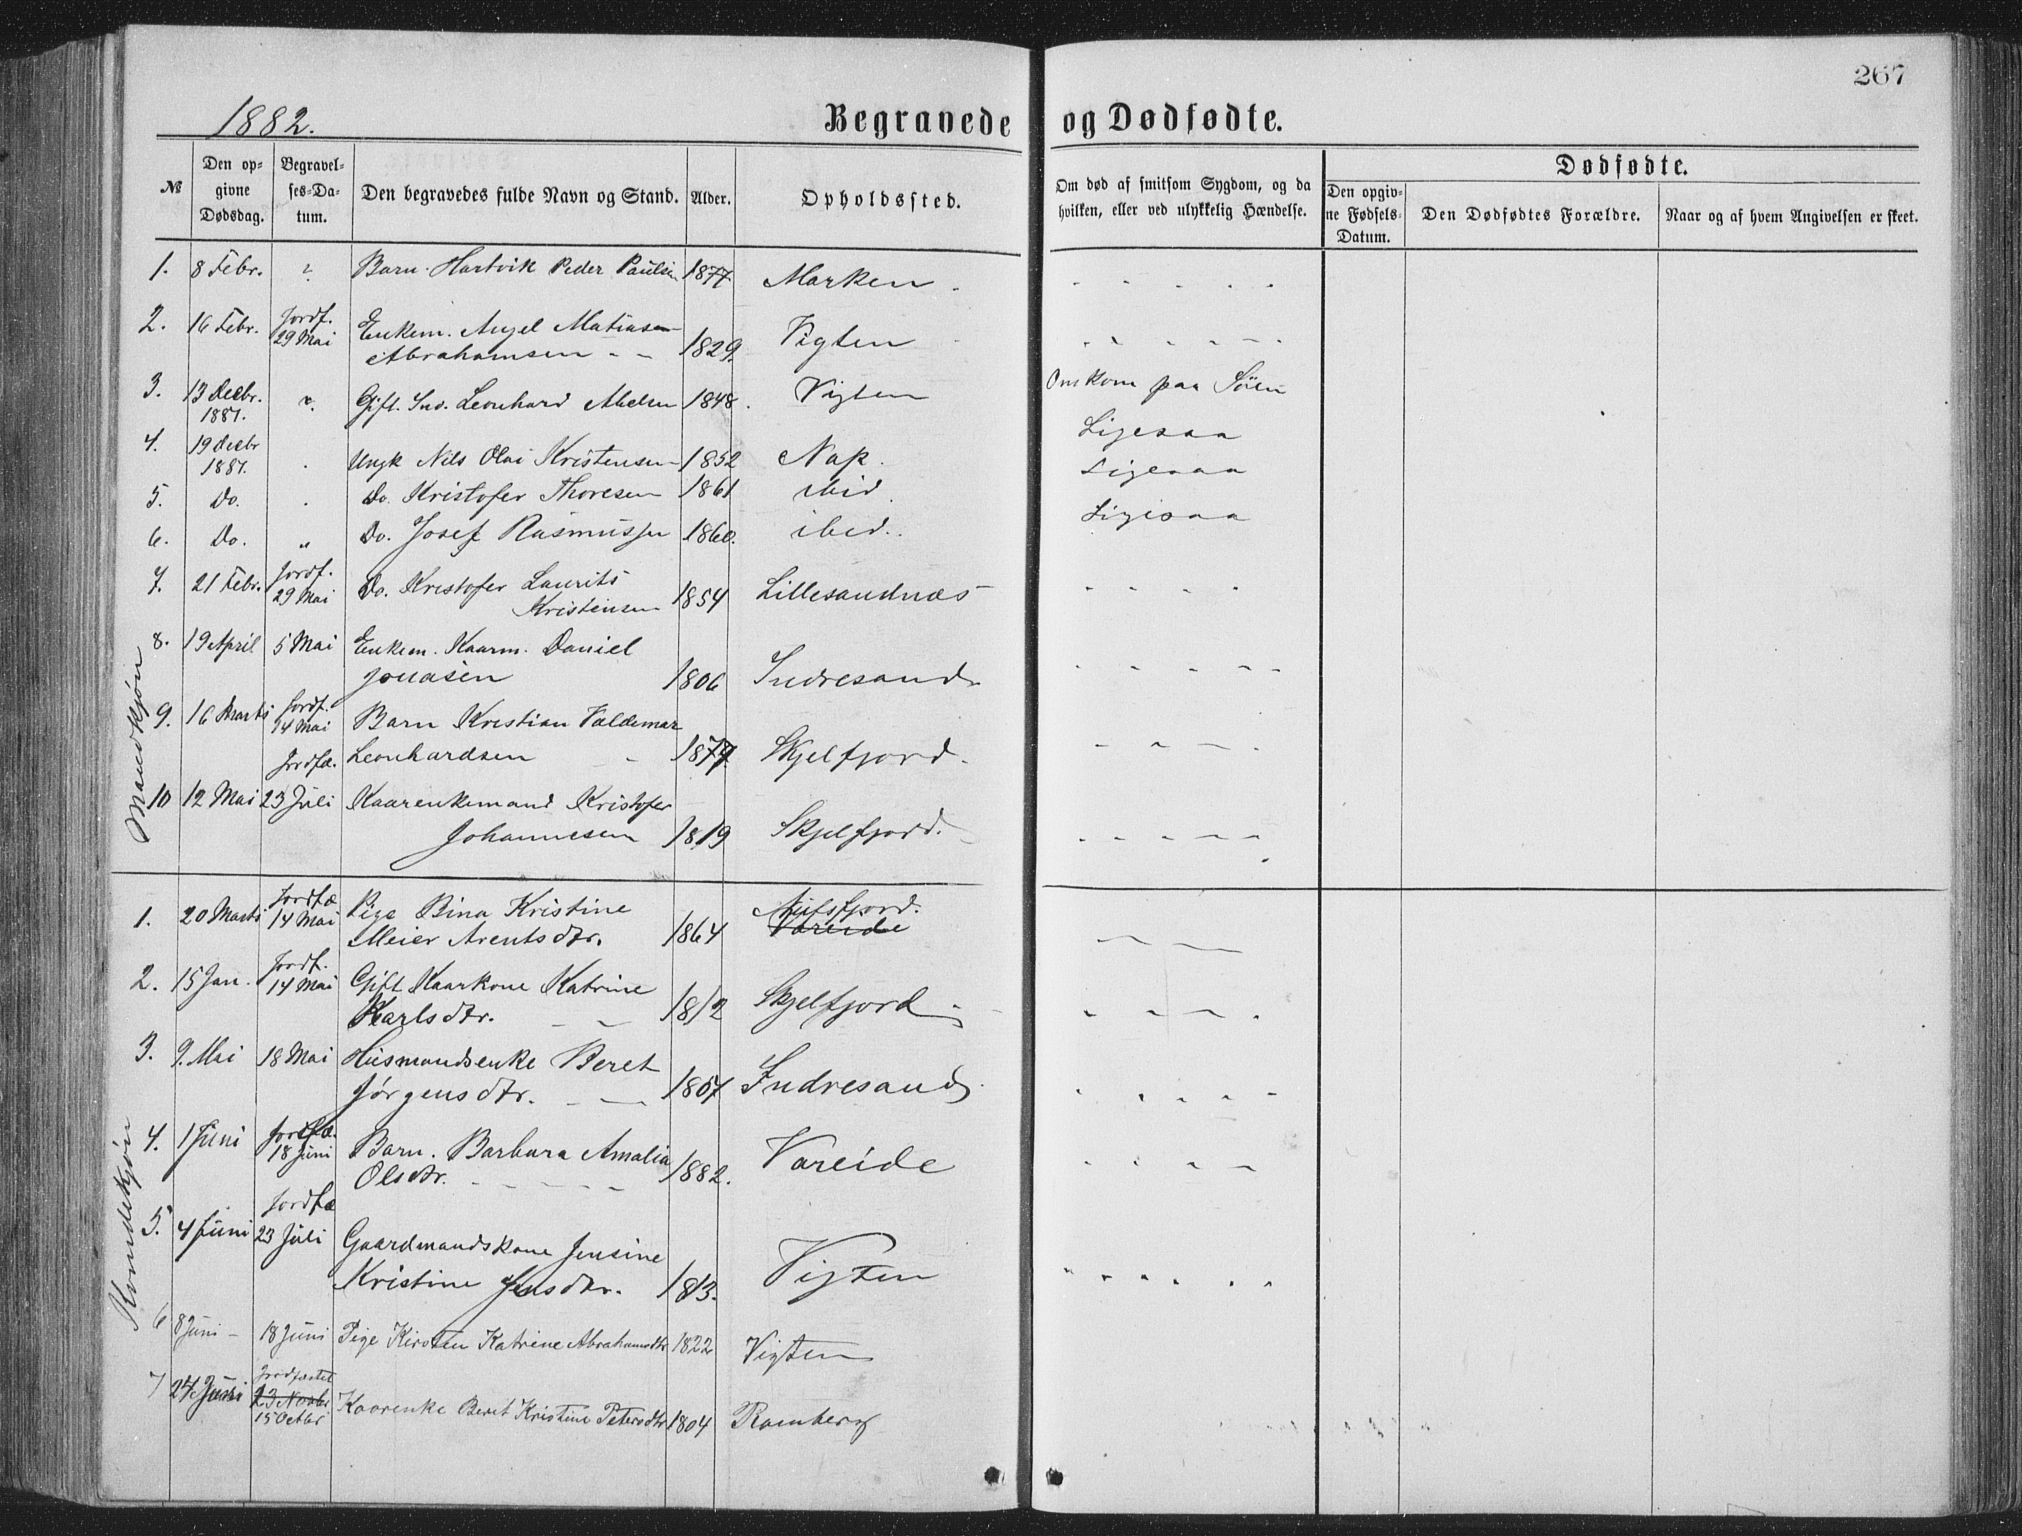 267
1882.
Begravede og Dødfødte.
№
Den opgivne Dødsdag.
Begravelses-Datum.
Den begravedes fulde Navn og Stand.
Alder.
Opholdssted.
Om død af smitsom Sygdom, og da hvilken, eller ved ulykkelig Hændelse.
Dødfødte.
Den opgivne Fødsels-Datum.
Den Dødfødtes Forældre.
Naar og af hvem Angivelsen er skeet.
Mandkjøn
1. 8 Febr. Barn Hartvik Peder Paulsen 1877 Marken
2. 16 Febr. Jordf. 29 Mai Enkem. Angel Matiasen
Abrahamsen 1829. Vigten
3. 13 Decbr. 1881. Gift. Ind. Leonhard Abelsen 1848. Vigten Omkom paa Søen
4. 19 Decbr 1881. Ungk Nils Olai Kristensen 1852 Nap. Ligesaa
5. Do. Do. Kristofer Thoresen 1861 ibid Ligesaa
6. Do. " Do. Josef Rasmussen 1860. ibid. Ligesaa
7. 21 Febr. Jordf. 29 Mai Do. Kristofer Laurits
Kristensen 1854 Lillesandnæs
8. 19 April 5 Mai Enkem. Kaarm. Daniel
Jonasen 1806 Indresand
9. 16 Marts Jordf. 14 Mai Barn Kristian Valdemar
Leonhardsen Skjelfjord.
10 12 Mai Jordfæ. 23 Juli Kaarenkemand Kristofer
Johannesen 1819 Skjelfjord.
Kvindekjøn
1. 20 Marts Jordfæ 14 Mai Pige Bina Kristine
Meier Arentsdtr. 1864 Nufsfjord. Vareide
2. 15 Jan. Jordf. 14 Mai Gift Kaarkone Katrine
Karlsdtr. 1812 Skjelfjord
3. 9. Mai 18 Mai Husmandsenke Beret
Jørgensdtr. 1807 Indresand
4. 1 Juni Jordfæ. 18 Juni Barn. Barbara Amalia
Olsdtr. 1882. Vareide
5. 4 Juni Jordfæ 23 Juli Gaardmandskone Jensine
Kristine Jensdtr. 1813. Vigten
6 8 Juni 18 Juni Pige Kirsten Katrine Abrahamsdtr 1822 Vigten
7 24 Juni Jordfæstet 23 Novbr 15 Octbr Kaarenke Beret Kristine Petersdtr 1804 Ramberg